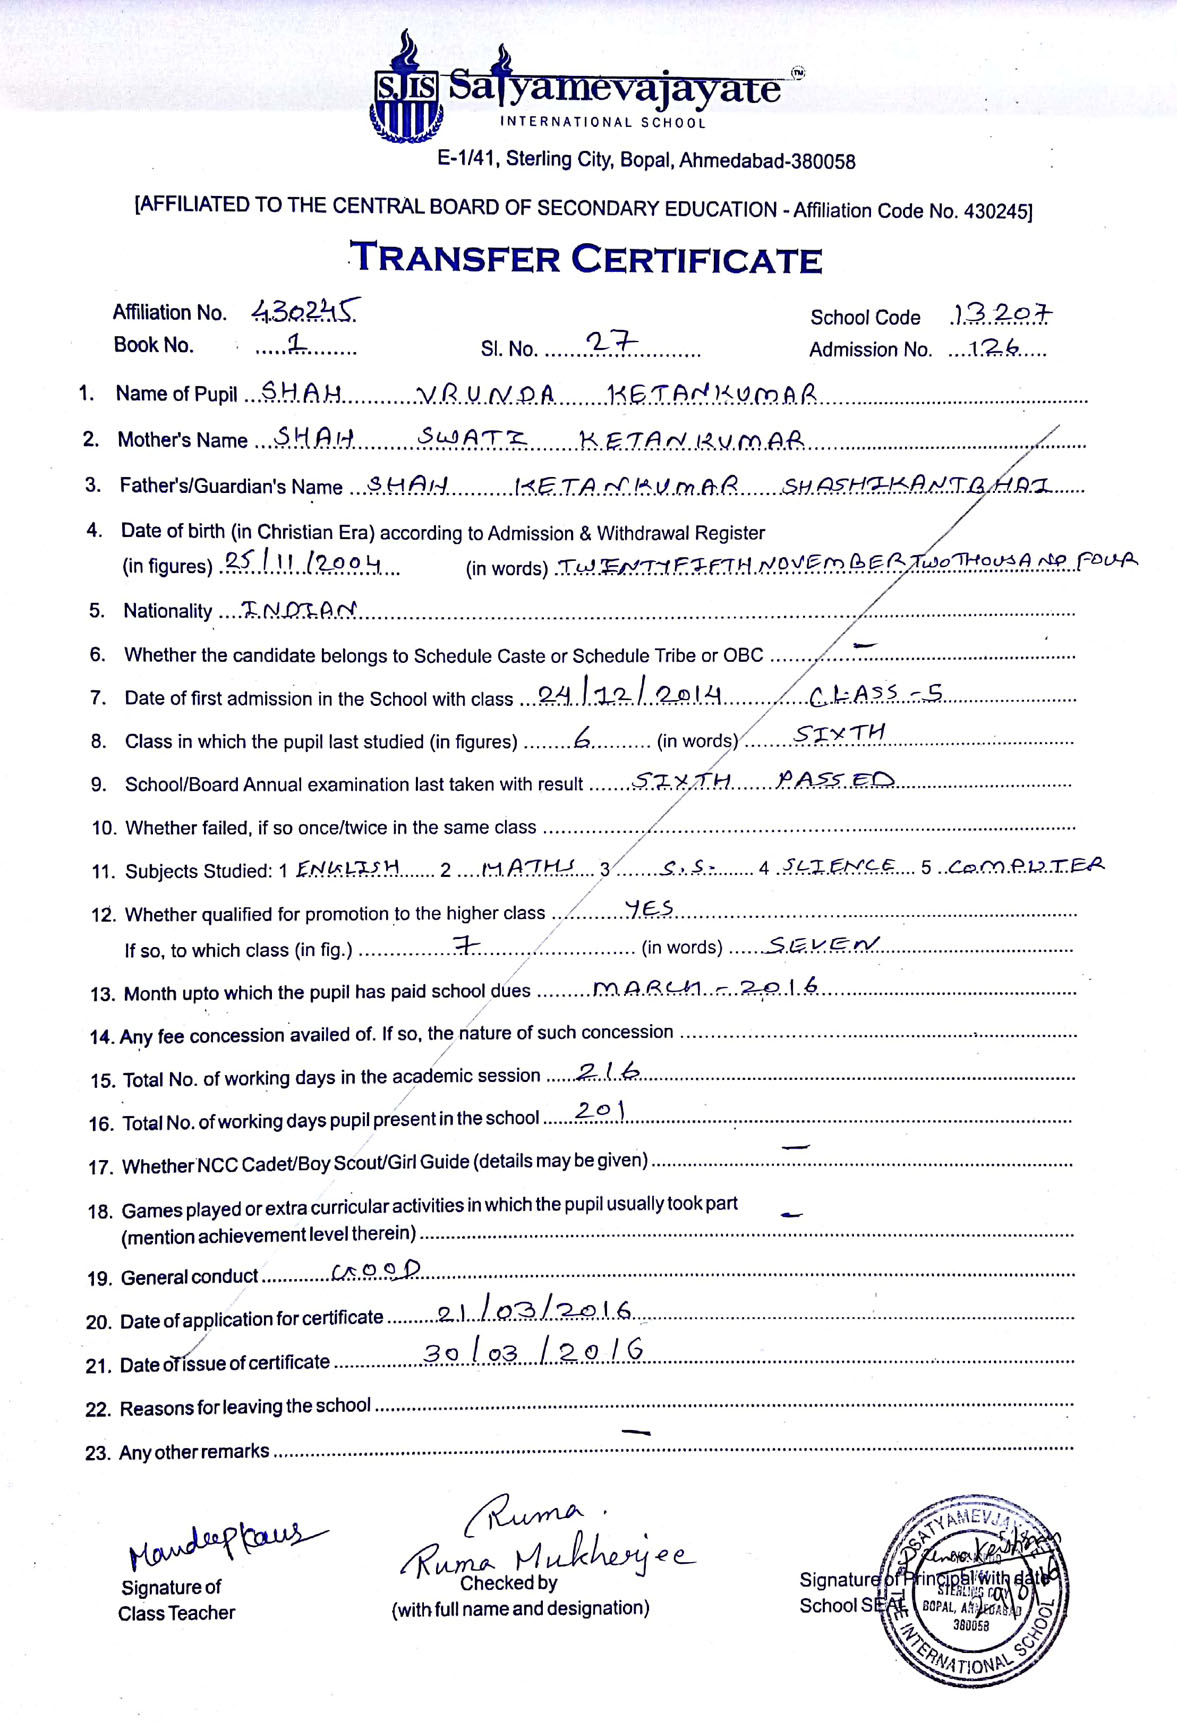 SJIS Satyamevajayate TM
INTERNATIONAL SCHOOL
E-1/41, Sterling City, Bopal, Ahmedabad-380058
[AFFILIATED TO THE CENTRAL BOARD OF SECONDARY EDUCATION - Affiliation Code No. 430245]
TRANSFER CERTIFICATE
Affiliation No. 430245 School Code 13207
Book No. 1 Sl. No. 27 Admission No. 126
1. Name of Pupil SHAH VRUNDA KETANKUMAR
2. Mother's Name SHAH SWATI KETANKUMAR
3. Father's/Guardian's Name SHAH KETANKUMAR SHASHIKANTBHAI
4. Date of birth (in Christian Era) according to Admission & Withdrawal Register
(in figures) 25/11/2004 (in words) TWENTYFIFTH NOVEMBER TWO THOUSAND FOUR
5. Nationality INDIAN
6. Whether the candidate belongs to Schedule Caste or Schedule Tribe or OBC –
7. Date of first admission in the School with class 24/12/2014 CLASS-5
8. Class in which the pupil last studied (in figures) 6 (in words) SIXTH
9. School/Board Annual examination last taken with result SIXTH PASSED
10. Whether failed, if so once/twice in the same class
11. Subjects Studied: 1 ENGLISH 2 MATHS 3 S.S. 4 SCIENCE 5 COMPUTER
12. Whether qualified for promotion to the higher class YES
If so, to which class (in fig.) 7 (in words) SEVEN
13. Month upto which the pupil has paid school dues MARCH - 2016
14. Any fee concession availed of. If so, the nature of such concession
15. Total No. of working days in the academic session 216
16. Total No. of working days pupil present in the school 201
17. Whether NCC Cadet/Boy Scout/Girl Guide (details may be given) –
18. Games played or extra curricular activities in which the pupil usually took part
(mention achievement level therein) –
19. General conduct GOOD
20. Date of application for certificate 21/03/2016
21. Date of issue of certificate 30/03/2016
22. Reasons for leaving the school
23. Any other remarks –
Mandeepkaur
Signature of
Class Teacher
Ruma.
Ruma Mukherjee
Checked by
(with full name and designation)
Signature of Principal with date
School SEAL
SATYAMEVJAYATE INTERNATIONAL SCHOOL
STERLING CITY
BOPAL, AHMEDABAD
380058